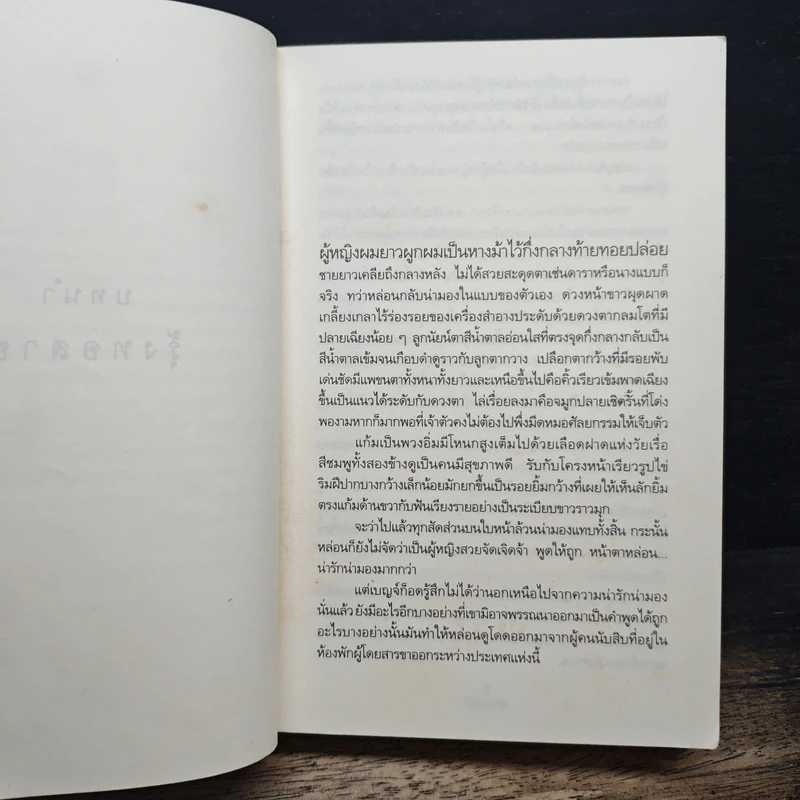 ผู้หญิงผมยาวผูกผมเป็นหางม้าไว้กึ่งกลางท้ายทอยปล่อย
ชายยาวเคลียถึงกลางหลัง ไม่ได้สวยสะดุดตาเช่นดาราหรือนางแบบก็
จริง ทว่าหล่อนกลับน่ามองในแบบของตัวเอง ดวงหน้าขาวผุดผาด
เกลี้ยงเกลาไร้ร่องรอยของเครื่องสำอางประดับด้วยดวงตากลมโตที่มี
ปลายเฉียงน้อย ๆ ลูกนัยน์ตาสีน้ำตาลอ่อนใสที่ตรงจุดกึ่งกลางกลับเป็น
สีน้ำตาลเข้มจนเกือบดำดูราวกับลูกตากวาง เปลือกตากว้างที่มีรอยพับ
เด่นชัดมีแพขนตาทั้งหนาทั้งยาวและเหนือขึ้นไปคือคิ้วเรียวเข้มพาดเฉียง
ขึ้นเป็นแนวได้ระดับกับดวงตา ไล่เรื่อยลงมาคือจมูกปลายเชิดรั้นที่โด่ง
พองามหากก็มากพอที่เจ้าตัวคงไม่ต้องไปพึ่งมีดหมอศัลยกรรมให้เจ็บตัว
แก้มเป็นพวงอิ่มมีโหนกสูงเต็มไปด้วยเลือดฝาดแห่งวัยเรื่อ
สีชมพูทั้งสองข้างดูเป็นคนมีสุขภาพดี รับกับโครงหน้าเรียวรูปไข่
ริมฝีปากบางกว้างเล็กน้อยมักยกขึ้นเป็นรอยยิ้มกว้างที่เผยให้เห็นลักยิ้ม
ตรงแก้มด้านขวากับฟันเรียงรายอย่างเป็นระเบียบขาวราวมุก
จะว่าไปแล้วทุกสัดส่วนบนใบหน้าล้วนน่ามองแทบทั้งสิ้น กระนั้น
หล่อนก็ยังไม่จัดว่าเป็นผู้หญิงสวยจัดเจิดจ้า พูดให้ถูก หน้าตาหล่อน...
น่ารักน่ามองมากกว่า
แต่เบญจ์ก็อดรู้สึกไม่ได้ว่านอกเหนือไปจากความน่ารักน่ามอง
นั่นแล้ว ยังมีอะไรอีกบางอย่างที่เขามิอาจพรรณนาออกมาเป็นคำพูดได้ถูก
อะไรบางอย่างนั้นมันทำให้หล่อนดูโดดออกมาจากผู้คนนับสิบที่อยู่ใน
ห้องพักผู้โดยสารขาออกระหว่างประเทศแห่งนี้